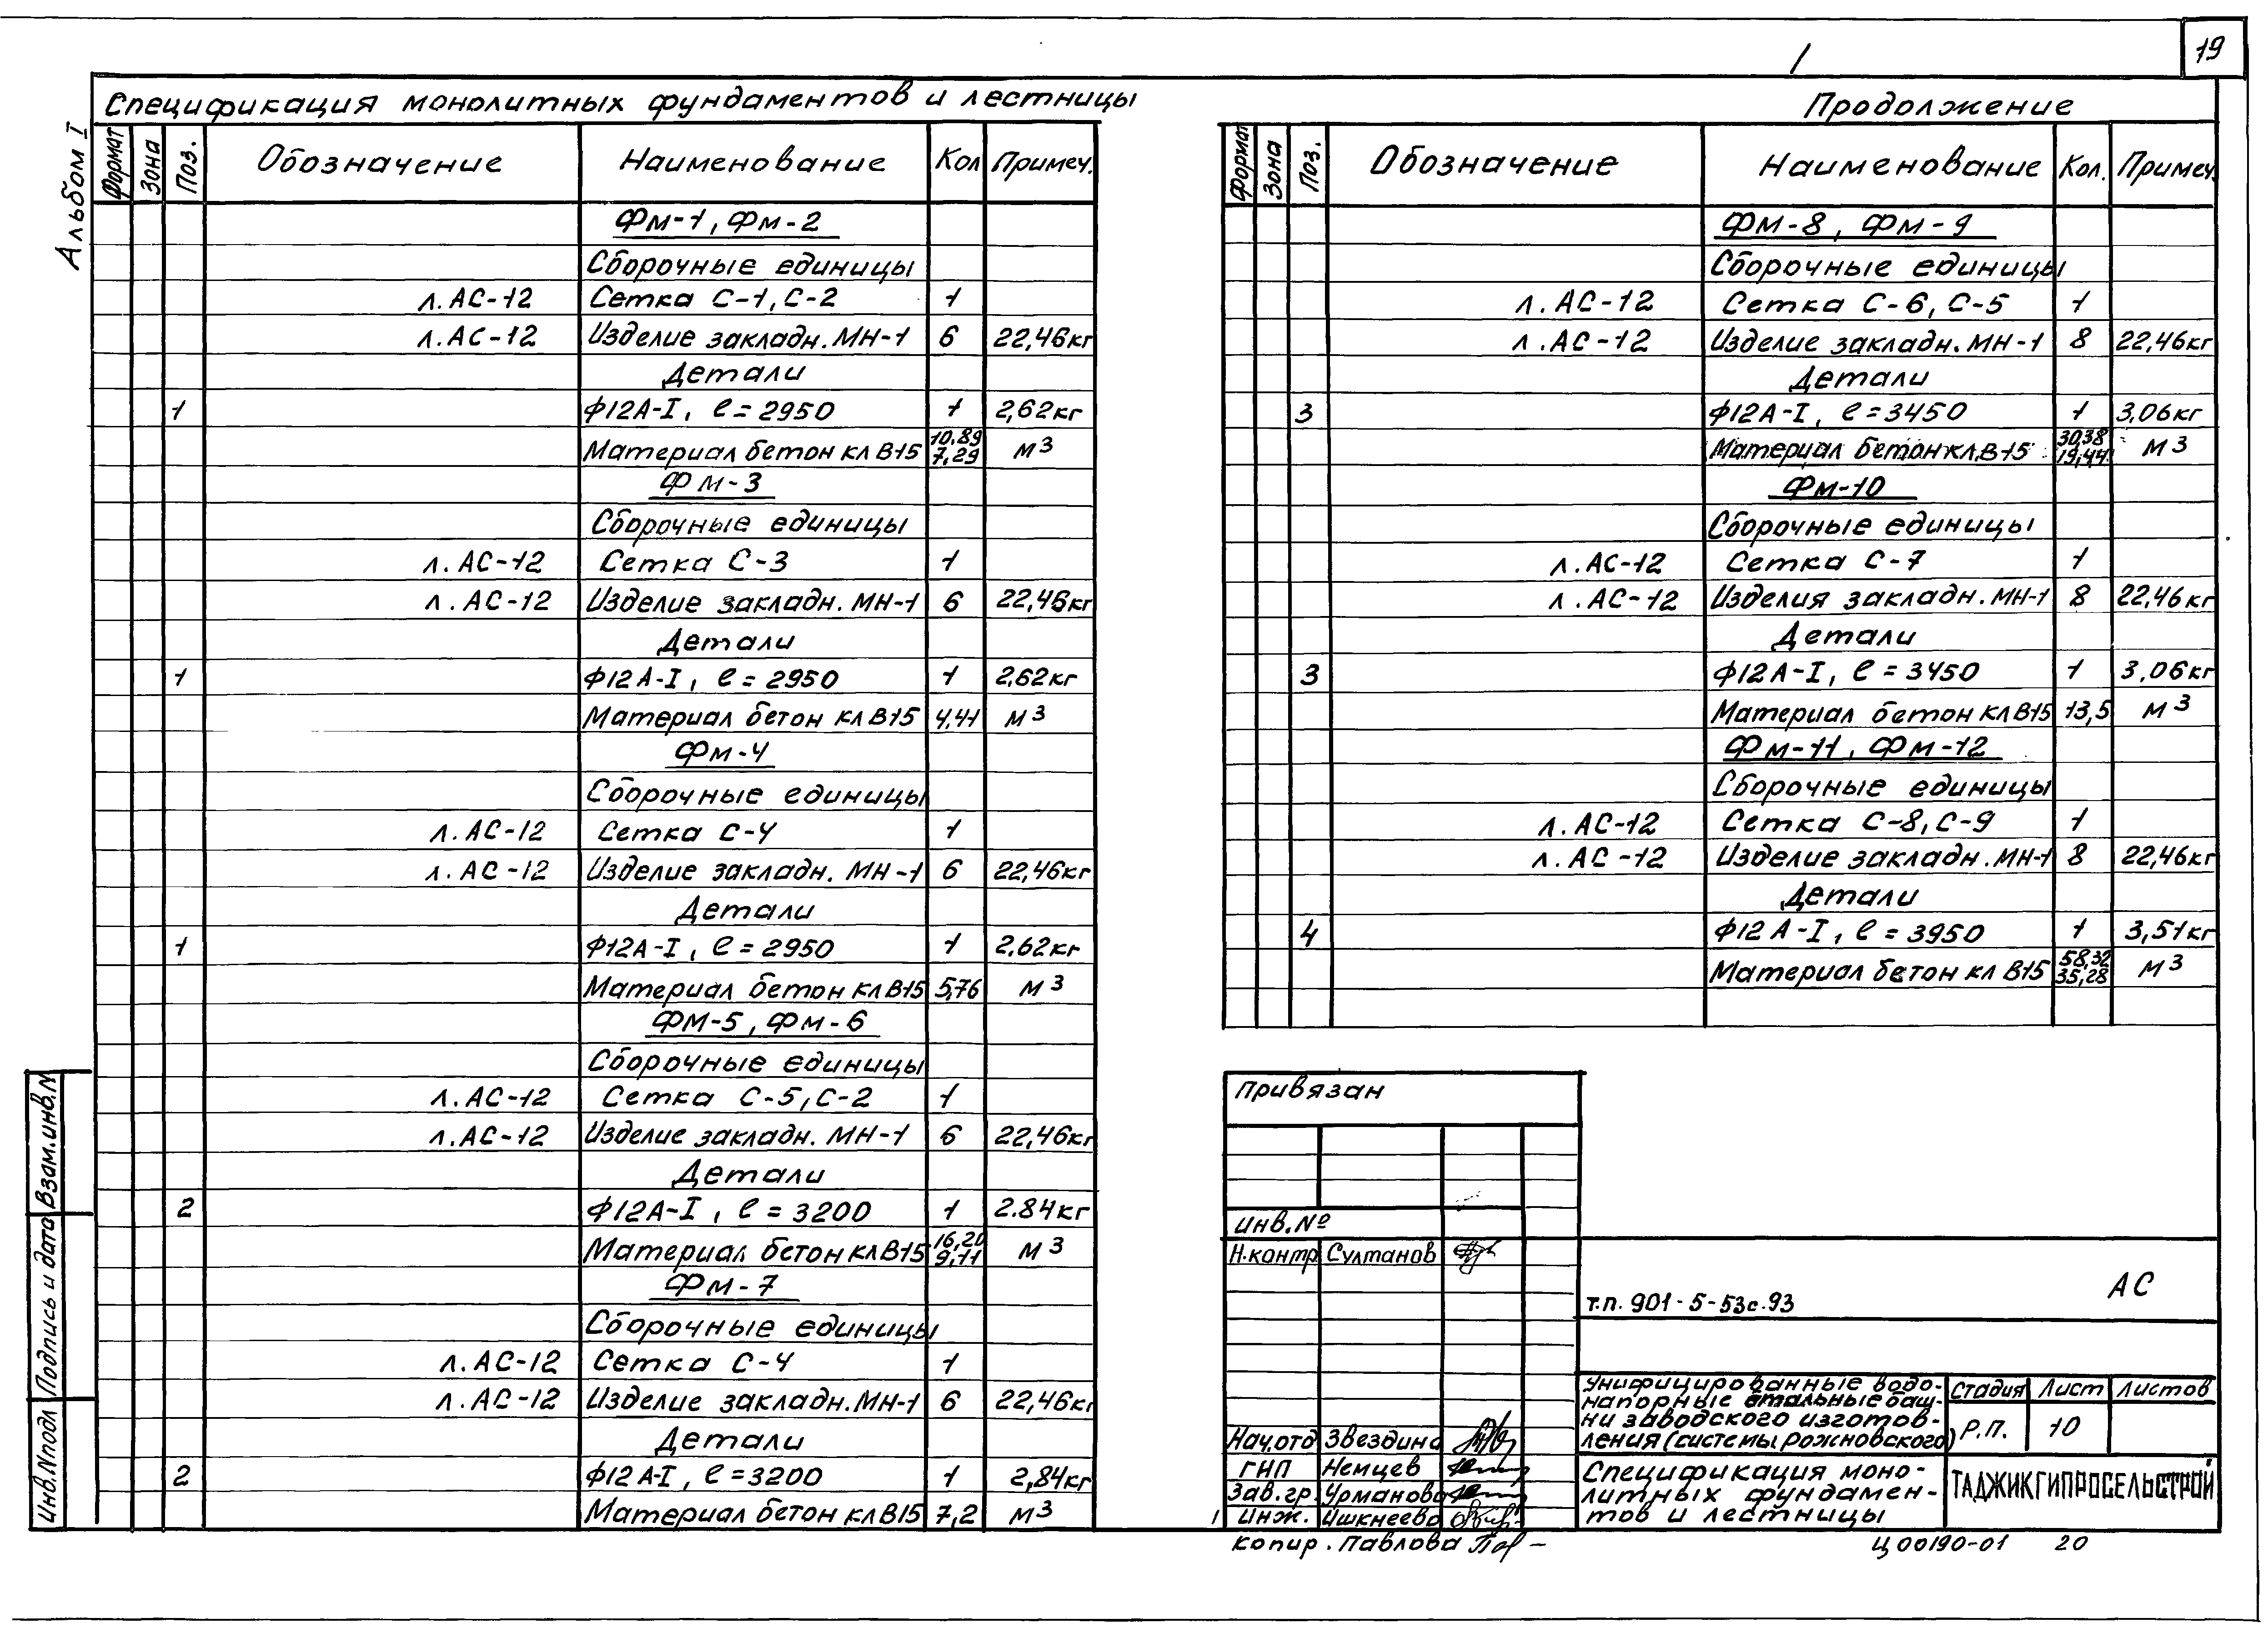 19
Альбом I
Спецификация монолитных фундаментов и лестницы
Формат Зона Поз. Обозначение Наименование Кол Примеч.
Фм-1, Фм-2
Сборочные единицы
л. АС-12 Сетка С-1, С-2 1
л. АС-12 Изделие закладн. МН-1 6 22,46кг
Детали
1 Ф12А-I, ℓ=2950 1 2,62кг
Материал бетон кл В15 10,89 7,29 м³
Фм-3
Сборочные единицы
л. АС-12 Сетка С-3 1
л. АС-12 Изделие закладн. МН-1 6 22,46кг
Детали
1 Ф12А-I, ℓ=2950 1 2,62кг
Материал бетон кл В15 4,41 м³
Фм-4
Сборочные единицы
л. АС-12 Сетка С-4 1
л. АС-12 Изделие закладн. МН-1 6 22,46кг
Детали
1 Ф12А-I, ℓ=2950 1 2,62кг
Материал бетон кл В15 5,76 м³
Фм-5, Фм-6
Сборочные единицы
л. АС-12 Сетка С-5, С-2 1
л. АС-12 Изделие закладн. МН-1 6 22,46кг
Детали
2 Ф12А-I, ℓ=3200 1 2.84кг
Материал бетон кл В15 16,20 9,11 м³
Фм-7
Сборочные единицы
л. АС-12 Сетка С-4 1
л. АС-12 Изделие закладн. МН-1 6 22,46кг
Детали
2 Ф12А-I, ℓ=3200 1 2,84кг
Материал бетон кл В15 7,2 м³
Продолжение
Формат Зона Поз. Обозначение Наименование Кол. Примеч.
Фм-8, Фм-9
Сборочные единицы
л. АС-12 Сетка С-6, С-5 1
л. АС-12 Изделие закладн. МН-1 8 22,46кг
Детали
3 Ф12А-I, ℓ=3450 1 3,06кг
Материал бетон кл. В-15 30,38 19,44 м³
Фм-10
Сборочные единицы
л. АС-12 Сетка С-7 1
л. АС-12 Изделия закладн. МН-1 8 22,46кг
Детали
3 Ф12А-I, ℓ=3450 1 3,06кг
Материал бетон кл В15 13,5 м³
Фм-11, Фм-12
Сборочные единицы
л. АС-12 Сетка С-8, С-9 1
л. АС-12 Изделие закладн. МН-1 8 22,46кг
Детали
4 Ф12А-I, ℓ=3950 1 3,51кг
Материал бетон кл В15 58,32 35,28 м³
Взам.инв.N
Подпись и дата
Инв.Nподл
Привязан
Инв.№
Н.контр Султанов
Нач.отд Звездина
ГНП Немцев
Зав.гр. Урманова
Инж. Ишкнеева
Копир. Павлова
т.п. 901-5-53с.93 АС
Унифицированные водо-
напорные стальные баш-
ни заводского изготов-
ления (системы Рожновского)
Стадия Лист Листов
Р.П. 10
Спецификация моно-
литных фундамен-
тов и лестницы
ТАДЖИКГИПРОСЕЛЬСТРОЙ
Ц00190-01 20